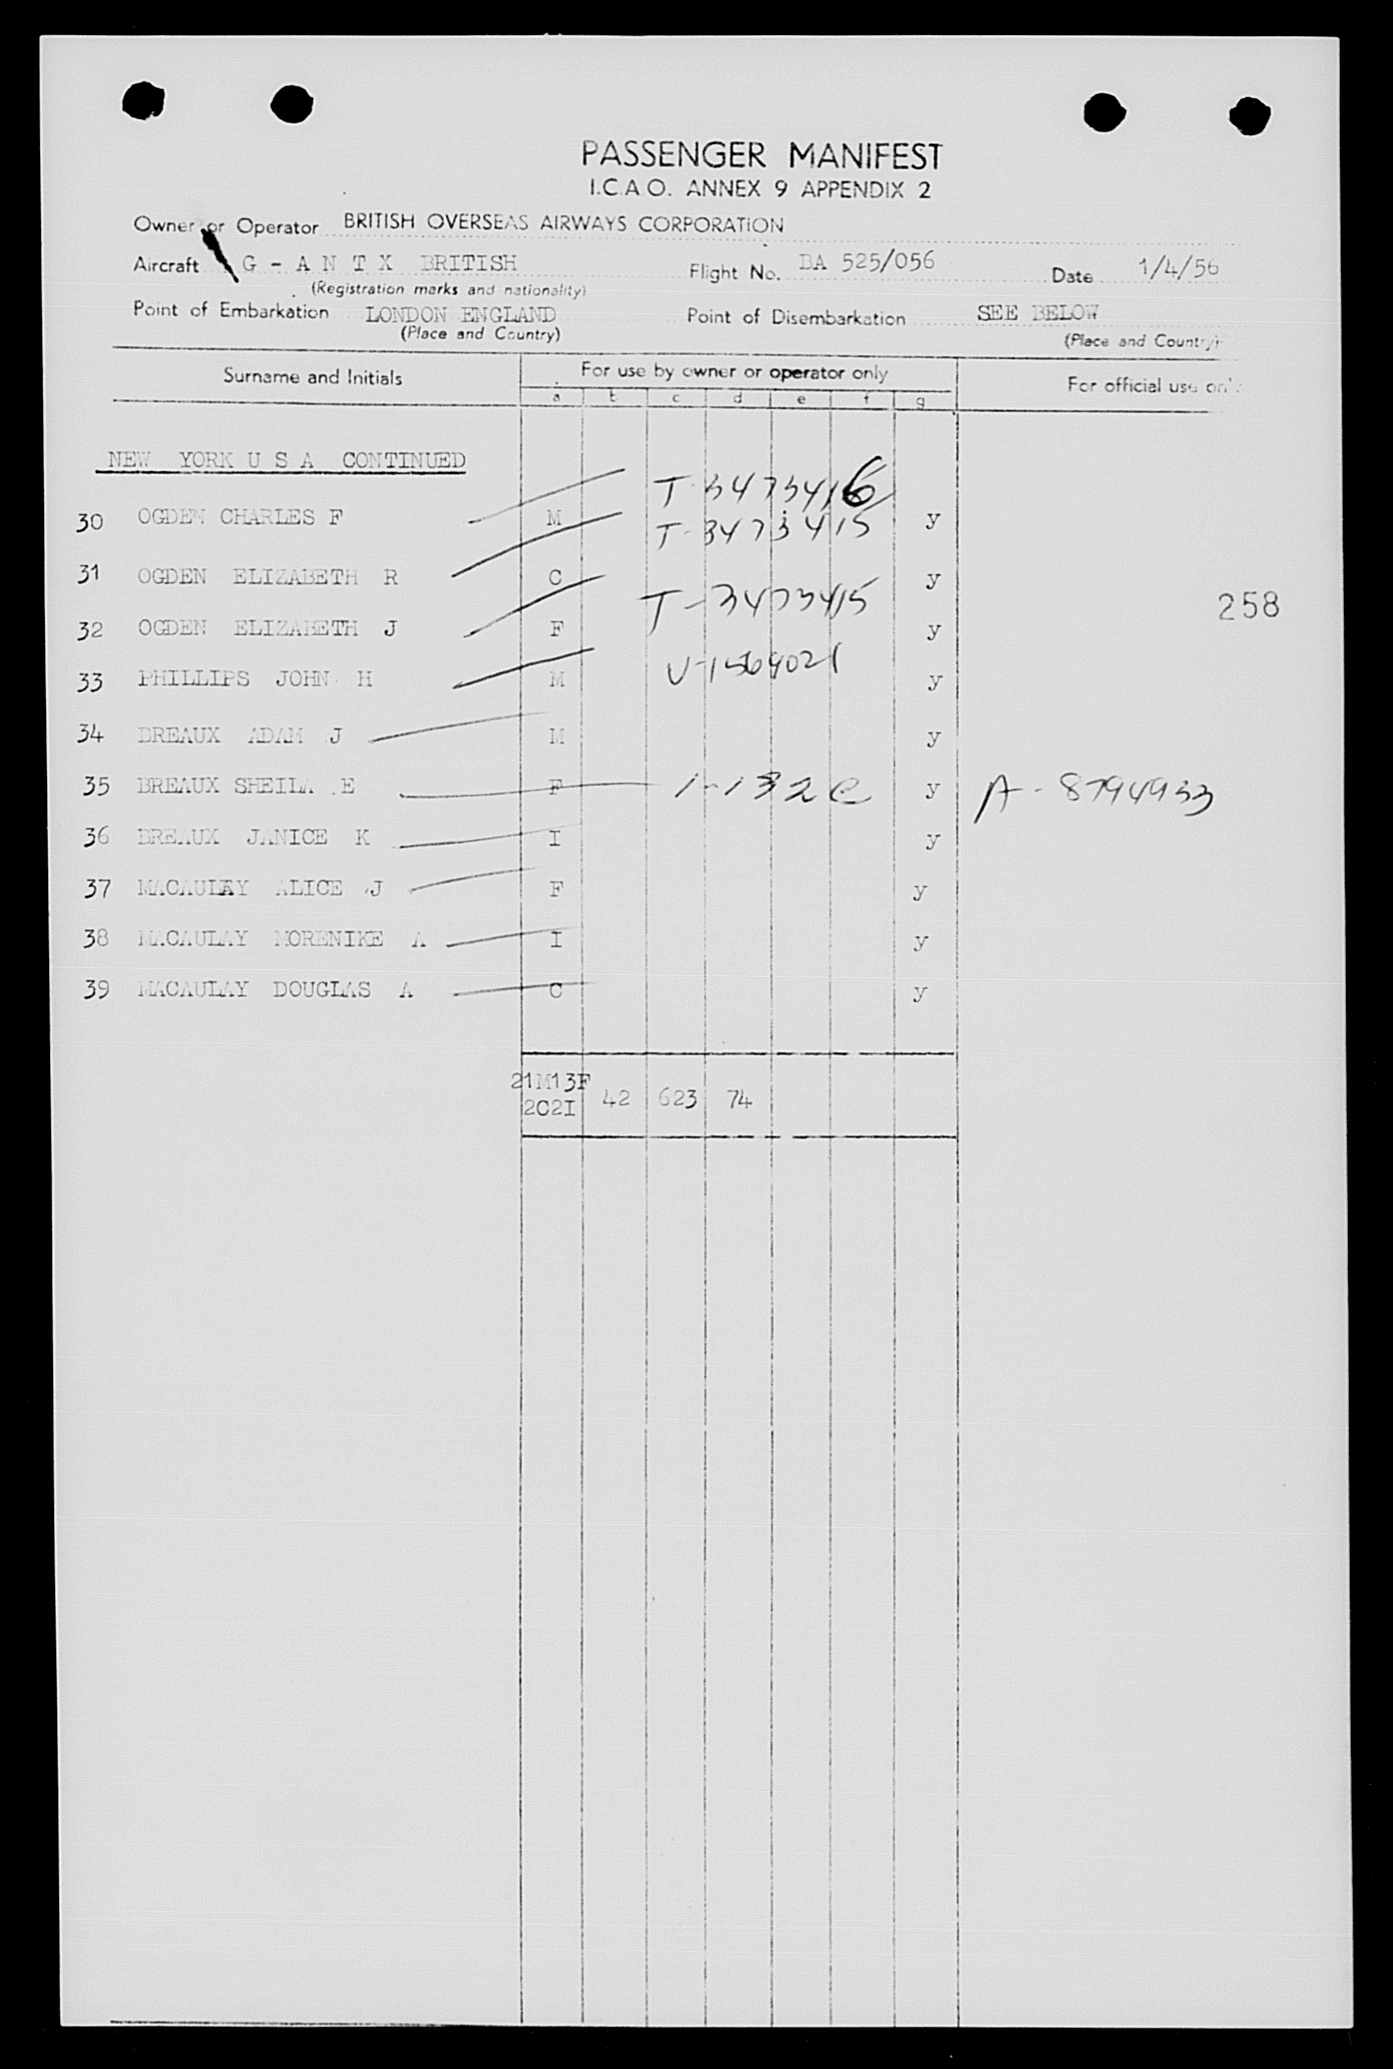 PASSENGER MANIFEST
I.C.A.O. ANNEX 9 APPENDIX 2
Owner or Operator BRITISH OVERSEAS AIRWAYS CORPORATION
Aircraft G - A N T X BRITISH Flight No. BA 525/056 Date 1/4/56
(Registration marks and nationality)
Point of Embarkation LONDON ENGLAND Point of Disembarkation SEE BELOW
(Place and Country) (Place and Country)
Surname and Initials For use by owner or operator only For official use only
a b c d e f g
NEW YORK U S A CONTINUED
T-3473416
30 OGDEN CHARLES F M y
T-3473415
31 OGDEN ELIZABETH R C y
T-3473415
258
32 OGDEN ELIZABETH J F y
33 PHILLIPS JOHN H M U-1564021 y
34 BREAUX ADAM J M y
35 BREAUX SHEILA E F 1-132e y A-8794933
36 BREAUX JANICE K I y
37 MACAULAY ALICE J F y
38 MACAULAY MORENIKE A I y
39 MACAULAY DOUGLAS A C y
21M13F
2C2I 42 623 74